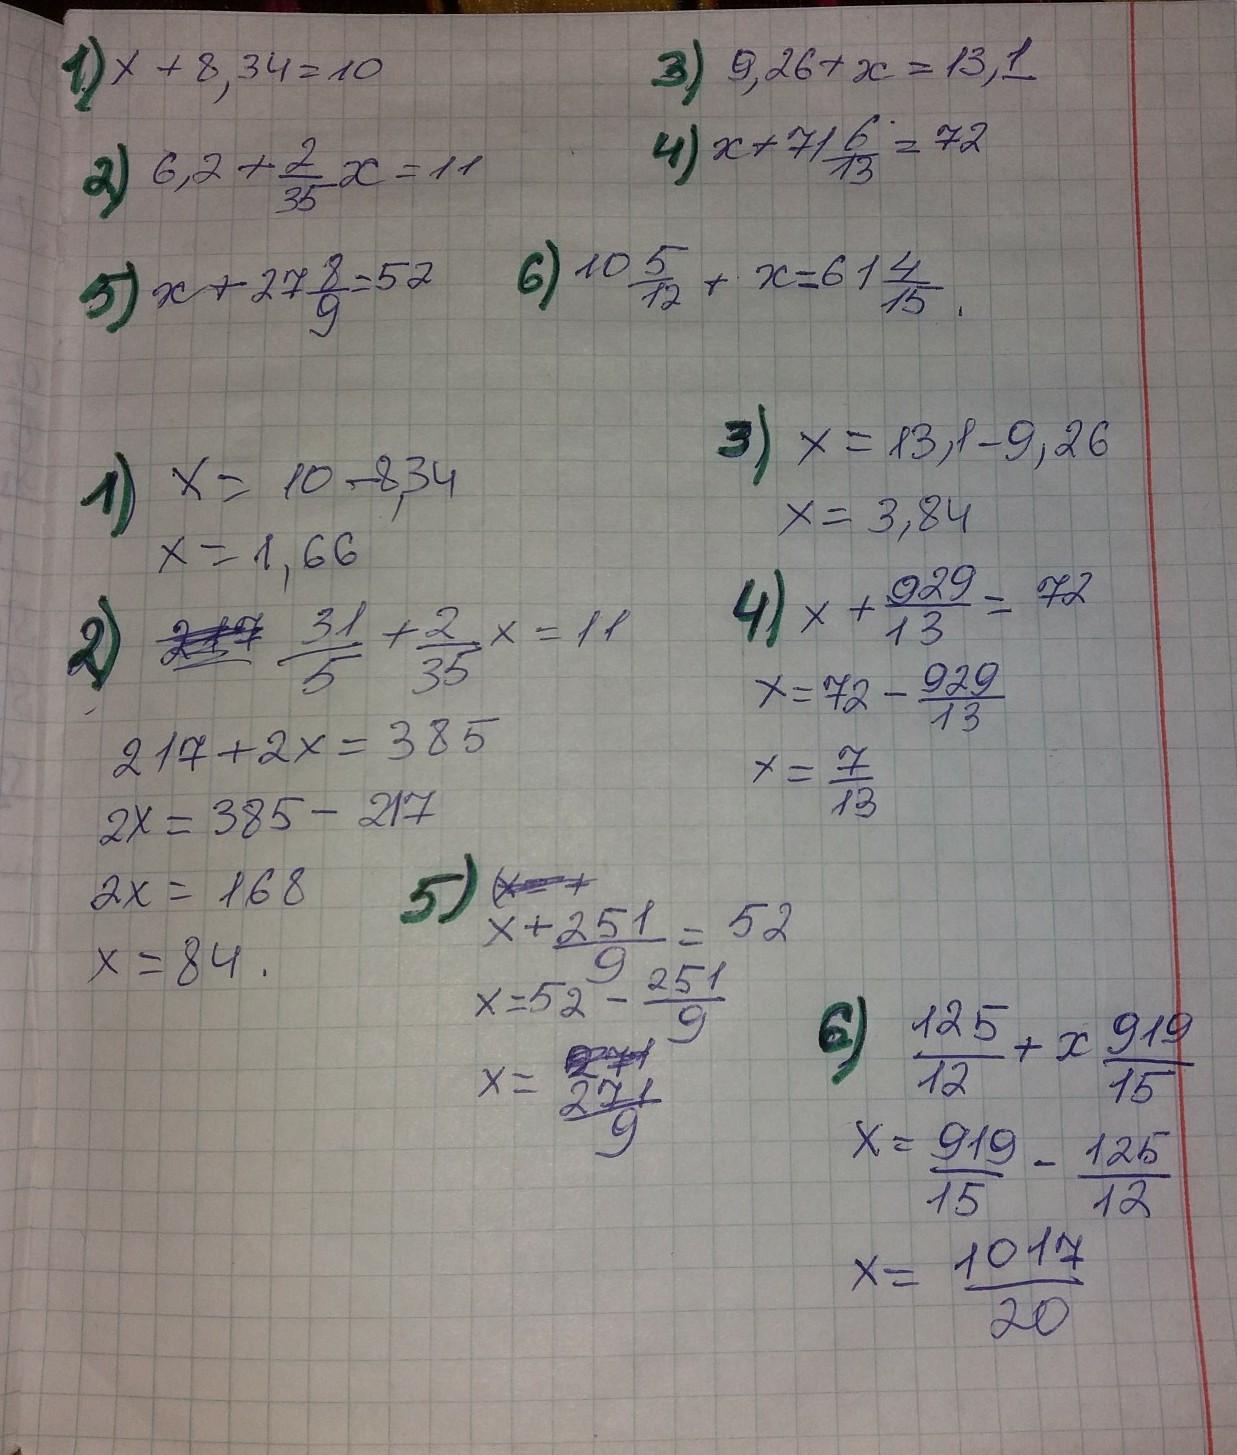 1) x + 8,34 = 10
3) 9,26 + x = 13,1
2) 6,2 + 2/35 x = 11
4) x + 71 6/13 = 72
5) x + 27 8/9 = 52
6) 10 5/12 + x = 61 4/15.
1) x = 10 - 8,34
x = 1,66
2) 31/5 + 2/35 x = 11
217 + 2x = 385
2x = 385 - 217
2x = 168
x = 84.
3) x = 13,1 - 9,26
x = 3,84
4) x + 929/13 = 72
x = 72 - 929/13
x = 7/13
5) x + 251/9 = 52
x = 52 - 251/9
x = 271/9
6) 125/12 + x 919/15
x = 919/15 - 125/12
x = 1017/20